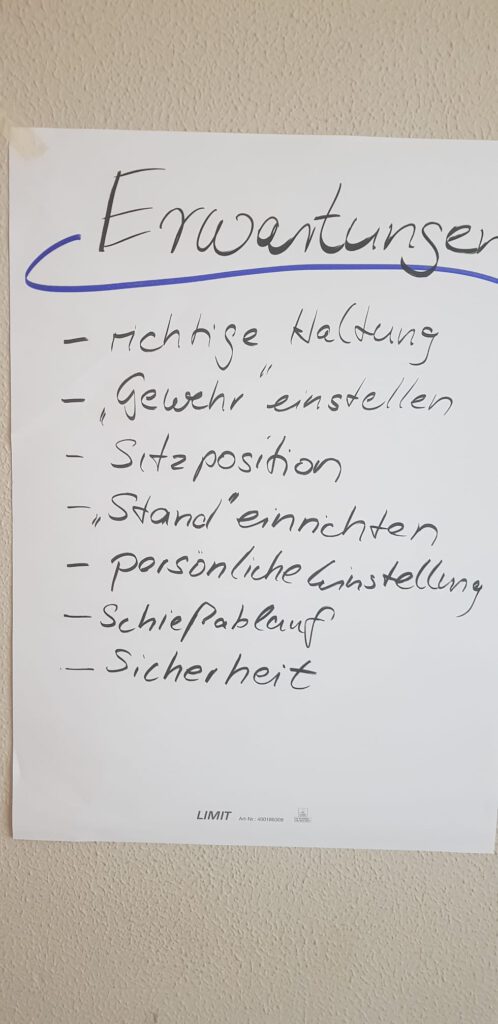 Erwartungen
- richtige Haltung
- „Gewehr" einstellen
- Sitzposition
- „Stand" einrichten
- persönliche Einstellung
- Schießablauf
- Sicherheit
LIMIT Art-Nr.: 400186309